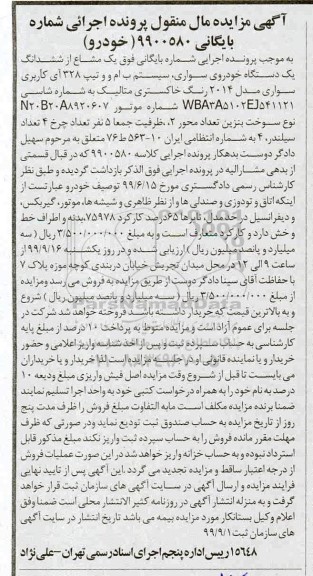 آگهی مزایده مال منقول پرونده اجرائی شماره
بایگانی ۹۹۰۰۵۸۰ ( خودرو)
به موجب پرونده اجرایی شماره بایگانی فوق یک مشاع از ششدانگ
یک دستگاه خودروی سواری، سیستم ب ام و و تیپ ۳۲۸ آی کاربری
سواری مدل ۲۰۱۴ رنگ خاکستری متالیک به شماره شاسی
WBA۳A۵۱۰۲EJ۵۴۱۱۲۱ شماره موتور N۲۰B۲۰A۸۹۲۰۶۰۷
نوع سوخت بنزین تعداد محور ۲، ظرفیت جمعا ۵ نفر تعداد چرخ ۴ تعداد
سیلندر، ۴ به شماره انتظامی ایران ۱۰-۵۶۳ ط ۷۶ متعلق به مرحوم سهیل
دادگر دوست بدهکار پرونده اجرایی کلاسه ۹۹۰۰۵۸۰ که در قبال قسمتی
از بدهی مشارالیه در پرونده اجرایی فوق الذکر بازداشت گردیده و طبق نظر
کارشناس رسمی دادگستری مورخ ۹۹/۶/۱۵ توصیف خودرو عبارتست از
اینکه اتاق و تودوزی و صندلی ها و از نظر ظاهری و شیشه ها، موتور، گیربکس،
و دیفرانسیل در حد مدل، تایرها ۶۵ درصد کارکرد ۷۵۹۷۸، بدنه و اطراف خط
و خش دارد و کارکرد متعارف است و به مبلغ ۳/۵۰۰/۰۰۰/۰۰۰ ریال ( سه
میلیارد و پانصد میلیون ریال ) ارزیابی شده و در روز یکشنبه ۹۹/۹/۱۶ از
ساعت ۹ الی ۱۲ در محل میدان تجریش خیابان دربندی کوچه موزه پلاک ۷
با حفاظت آقای سینا دادگر دوست از طریق مزایده به فروش می رسد ومزایده
از مبلغ ۳/۵۰۰/۰۰۰/۰۰۰ ریال ( سه میلیارد و پانصد میلیون ریال ) شروع
و به بالاترین قیمت که خریدار داشته باشد فروخته خواهد شد شرکت در
جلسه برای عموم آزاد است و مزایده منوط به پرداخت ۱۰درصد از مبلغ پایه
کارشناسی به حساب سپرده ثبت و پس از اخذ شناسه واریز اعلامی و حضور
خریدار و یا نماینده قانونی او در جلسه مزایده است لذا خریدار و یا خریداران
می بایست تا قبل از شروع وقت مزایده اصل فیش واریزی مبلغ ودیعه ۱۰
درصد به نام خود را به همراه درخواست کتبی خود به واحد اجرا تسلیم نمایند
ضمنا برنده مزایده مکلف است مابه التفاوت مبلغ فروش را ظرف مدت پنج
روز از تاریخ مزایده به حساب صندوق ثبت تودیع نماید ودر صورتی که ظرف
مهلت مقرر مانده فروش را به حساب سپرده ثبت واریز نکند مبلغ مذکور قابل
استرداد نبوده و به حساب خزانه واریز خواهد شد در این صورت عملیات فروش
از درجه اعتبار ساقط و مزایده تجدید می گردد .این آگهی پس از تایید نهایی
فرایند مزایده و ارسال آگهی در سایت آگهی های سازمان ثبت قرار خواهد
گرفت و به منزله انتشار آگهی در روزنامه کثیر الانتشار محلی است ضمنا وفق
اعلام وکیل بستانکار مورد مزایده بیمه می باشد تاریخ انتشار در سایت آگهی
های سازمان ثبت ۹۹/۹/۱
۱۵۶۴۸ رییس اداره پنجم اجرای اسناد رسمی تهران –علی نژاد